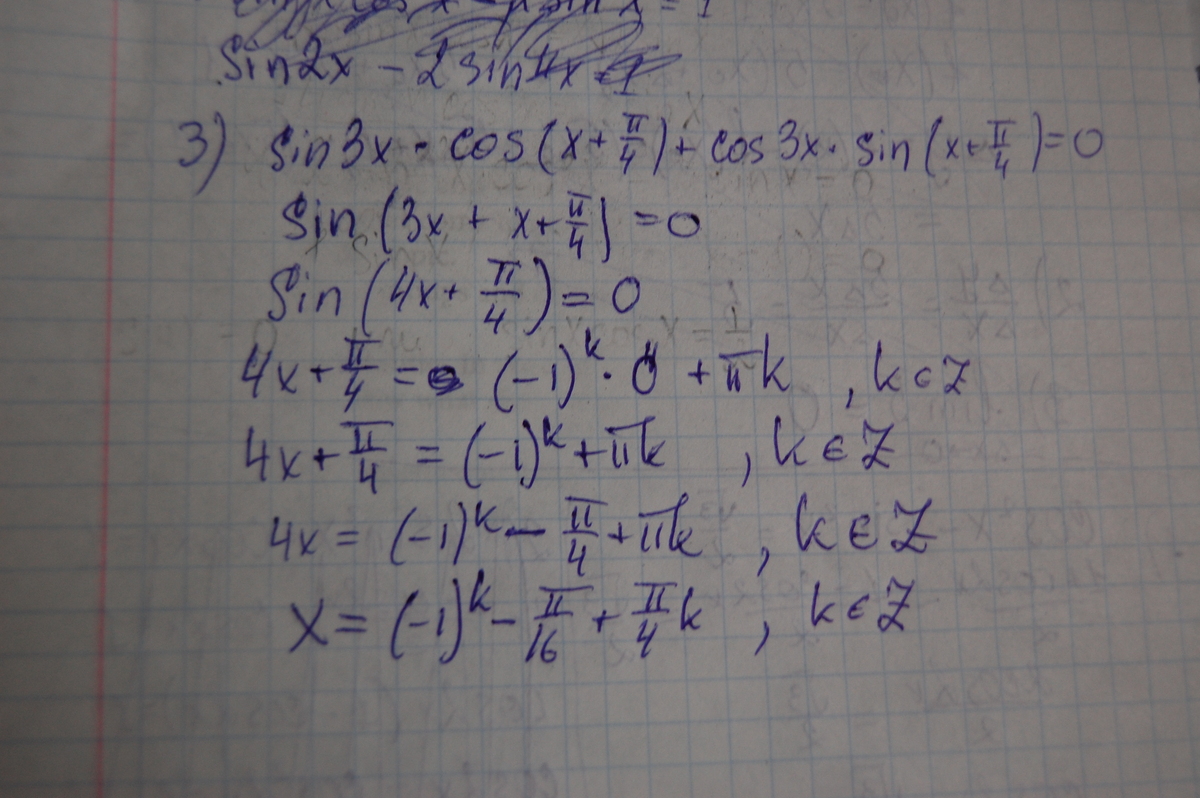 sin2x - 2sin4x = 1
3) sin3x · cos(x+π/4) + cos3x · sin(x+π/4)=0
sin(3x + x+π/4) = 0
sin(4x+ π/4) = 0
4x+π/4 = (-1)^k · 0 + πk , k∈Z
4x+π/4 = (-1)^k + πk , k∈Z
4x = (-1)^k - π/4 + πk , k∈Z
x = (-1)^k - π/16 + π/4 k , k∈Z